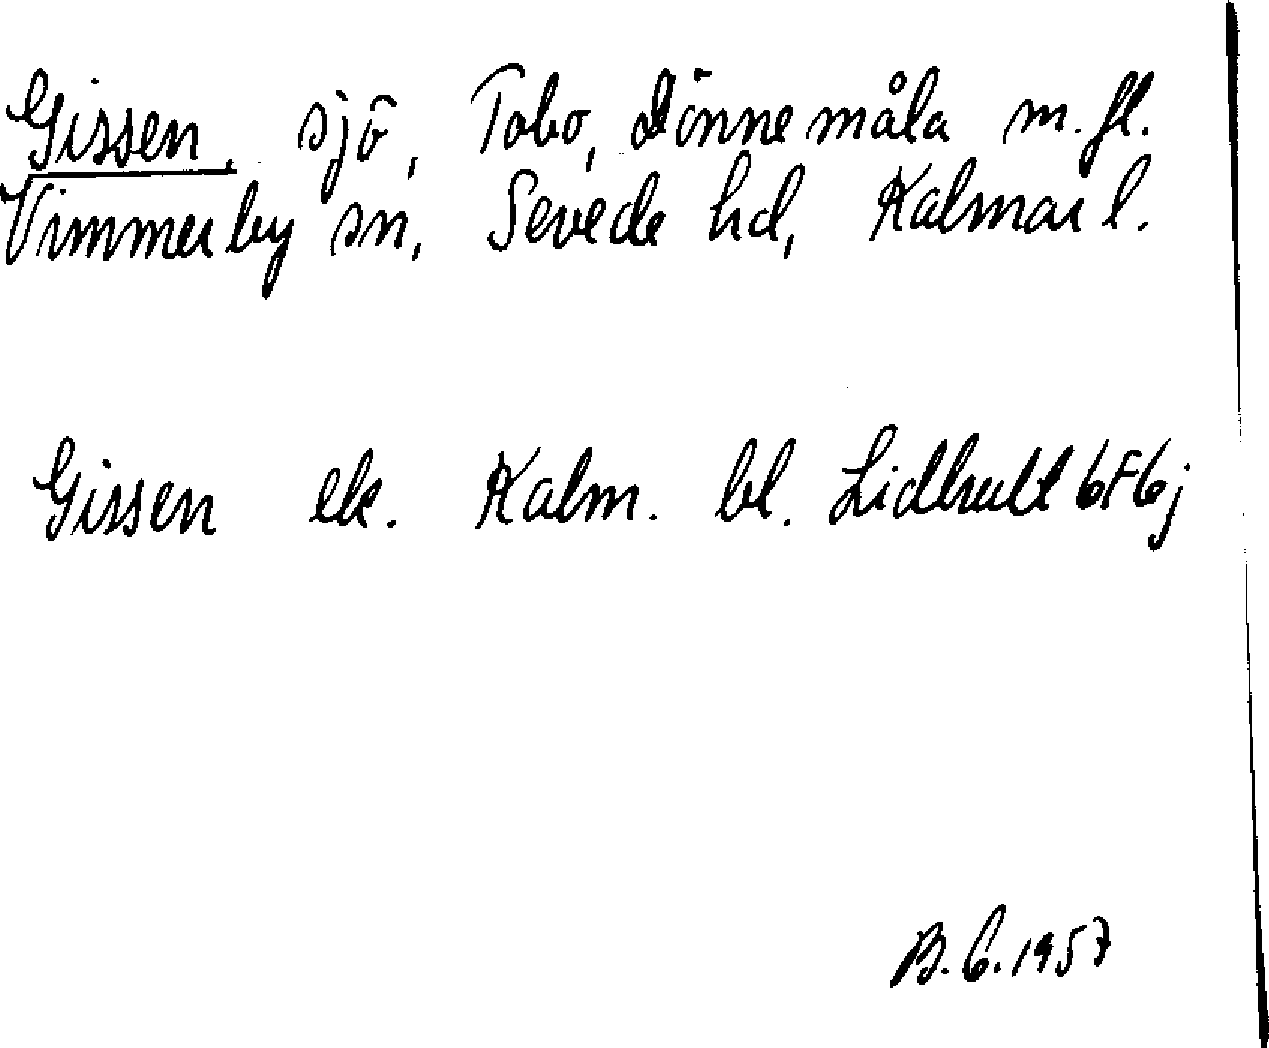 Gissen, sjö, Tobo, Dönnemåla m.fl.
Vimmerby sn, Sevede hd, Kalmar l.
Gissen ek. Kalm. bl. Lidhult 6F6j
B.G.1957